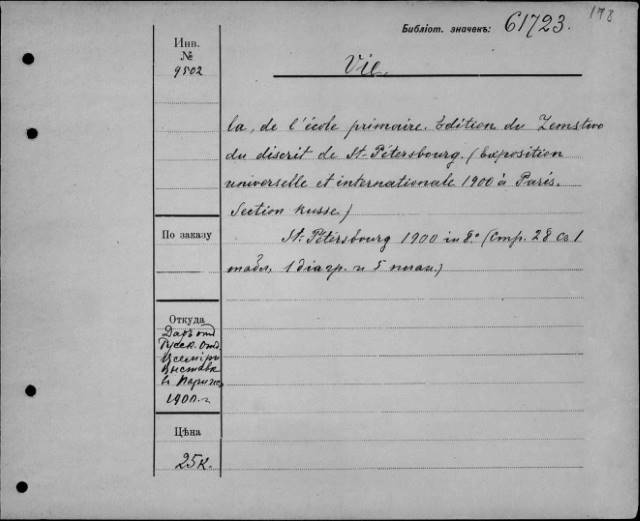 178
Библіот. значекъ: 61723.
Инв.
№
9502
Vie.
la, de l'école primaire. Edition du Zemstwo
du discrit de St. Pétersbourg. (Exposition
universelle et internationale 1900 à Paris.
Section Russe.)
По заказу
St. Pétersbourg 1900 in 8º. (Стр. 28 съ 1
табл., 1 діагр. и 5 план.)
Откуда
Даръ отъ
Русск. Отд.
Всемірн
Выставк
въ Париже
1900 г.
Цѣна
25к.